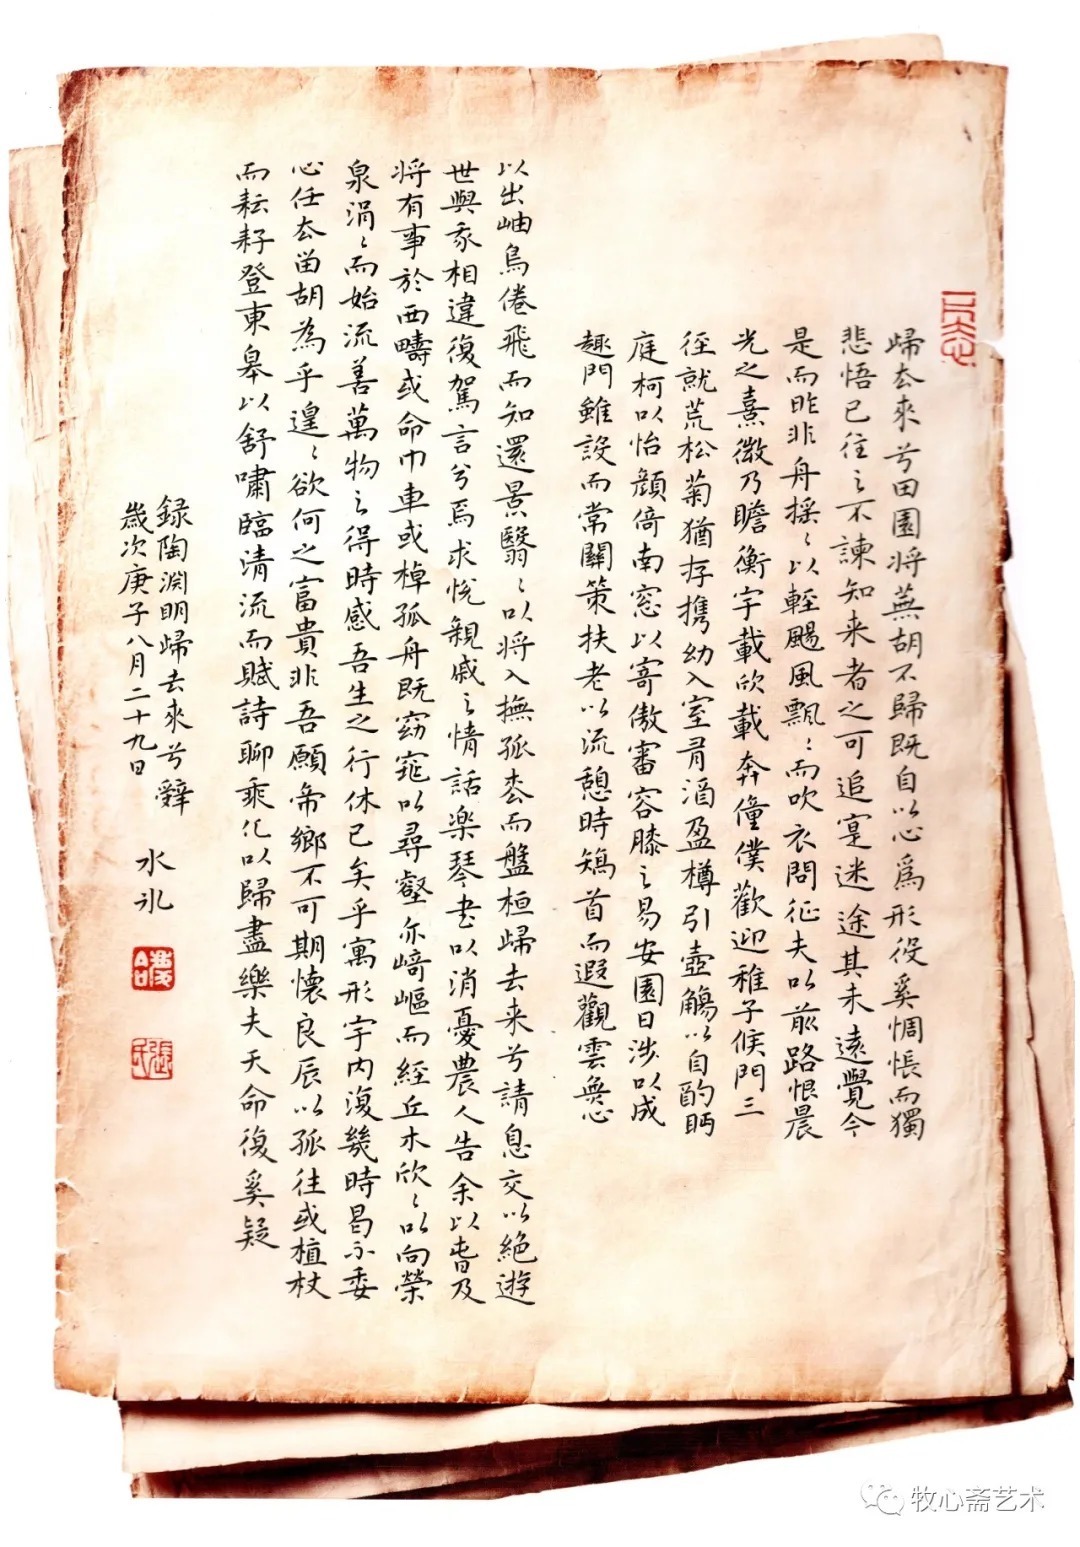 歸去來兮田園将蕪胡不歸既自以心爲形役奚惆悵而獨
悲悟已往之不諫知来者之可追寔迷途其未遠覺今
是而昨非舟揺〻以輕颺風飄〻而吹衣問征夫以前路恨晨
光之熹微乃瞻衡宇載欣載奔僮僕歡迎稚子候門三
徑就荒松菊猶存携幼入室有酒盈樽引壺觴以自酌眄
庭柯以怡顔倚南窓以寄傲審容膝之易安園日涉以成
趣門雖設而常關策扶老以流憩時矯首而遐觀雲無心
以出岫鳥倦飛而知還景翳〻以将入撫孤枩而盤桓歸去来兮請息交以絶遊
世與我相違復駕言兮焉求悅親戚之情話楽琴書以消憂農人告余以春及
将有事於西疇或命巾車或棹孤舟既窈窕以尋壑亦崎嶇而經丘木欣〻以向榮
泉涓〻而始流善萬物之得時感吾生之行休已矣乎寓形宇内復幾時曷不委
心任去留胡為乎遑〻欲何之富貴非吾願帝鄉不可期懷良辰以孤往或植杖
而耘耔登東皋以舒嘯臨清流而賦詩聊乘化以歸盡樂夫天命復奚疑
録陶淵明歸去來兮辭
歲次庚子八月二十九日 水氷
牧心斋艺术